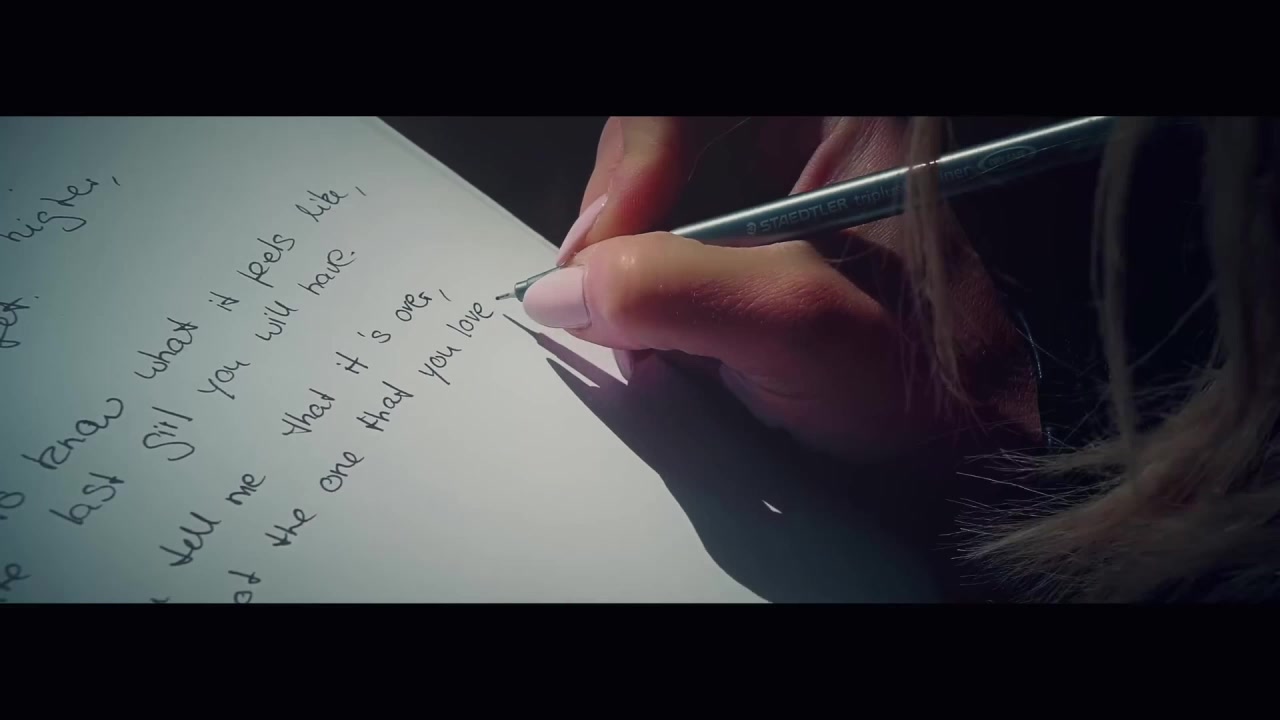 higher,
know what it feels like,
last girl you will have.
tell me that it's over,
the one that you love
STAEDTLER